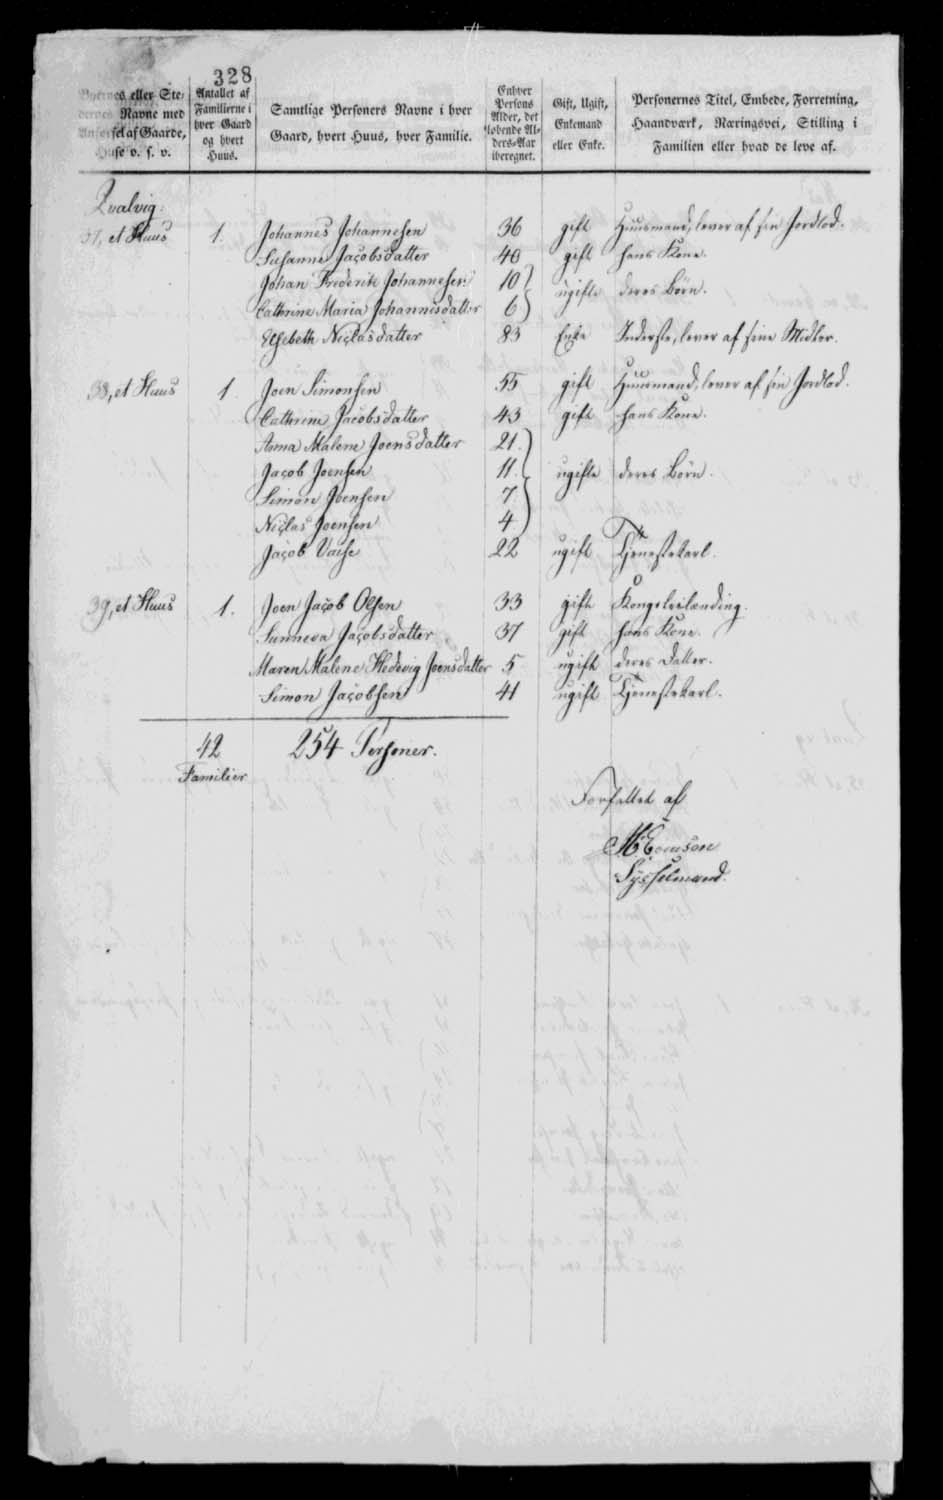 328
Byernes eller Ste-
dernes Navne med
Antallet af
Familierne i
hver Gaard
og hvert
Huus.
Samtlige Personers Navne i hver
Gaard, hvert Huus, hver Familie.
Enhver
Persons
Alder, det
løbende Al-
ders-Aar
iberegnet.
Gift, Ugift,
Enkemand
eller Enke.
Personernes Titel, Embede, Forretning,
Haandværk, Næringsvei, Stilling i
Familien eller hvad de leve af.
sel af Gaarde,
Huse o. s. v.
Qvalvig.
37, et Huus 1. Johannes Johannesen 36 gift Huusmand, lever af sin Jordlod.
Susanne Jacobsdatter 40 gift hans Kone.
Johan Frederik Johannesen 10 ugifte deres Börn.
Cathrine Maria Johannisdatter 6
Elsebeth Niclasdatter 83 Enke Inderste, lever af sine Midler.
38, et Huus 1. Joen Simonsen 55 gift Huusmand, lever af sin Jordlod.
Cathrine Jacobsdatter 43 gift hans Kone.
Anna Malene Joensdatter 21.
Jacob Joensen 11. ugifte deres Börn.
Simon Joensen 7.
Niclas Joensen 4
Jacob 22 ugift Tjenestekarl.
39, et Huus 1. Joen Jacob Olsen 33 gift Kongsleilænding.
Sunneva Jacobsdatter 37 gift hans Kone.
Maren Malene Hedevig Joensdatter 5 ugift deres Datter.
Simon Jacobsen 41 ugift Tjenestekarl.
42 254 Personer.
Familier
Forfattet af
Sysselmand.